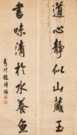 道心靜似山藏玉
書味清於水養魚